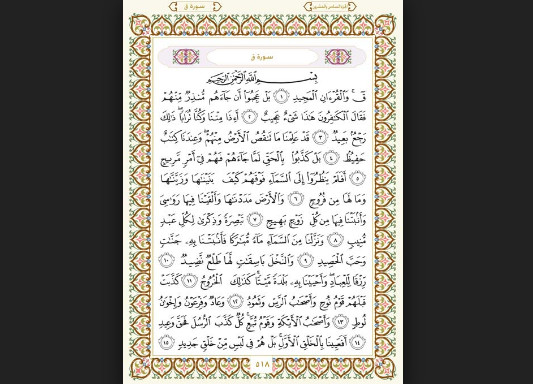 الجزء السادس والعشرون
سورة ق
سورة ق
بِسْمِ ٱللَّهِ ٱلرَّحْمَٰنِ ٱلرَّحِيمِ
قٓۚ وَٱلْقُرْءَانِ ٱلْمَجِيدِ ١ بَلْ عَجِبُوٓا۟ أَن جَآءَهُم مُّنذِرٌ مِّنْهُمْ
فَقَالَ ٱلْكَٰفِرُونَ هَٰذَا شَىْءٌ عَجِيبٌ ٢ أَءِذَا مِتْنَا وَكُنَّا تُرَابًا ۖ ذَٰلِكَ
رَجْعٌۢ بَعِيدٌ ٣ قَدْ عَلِمْنَا مَا تَنقُصُ ٱلْأَرْضُ مِنْهُمْ ۖ وَعِندَنَا كِتَٰبٌ
حَفِيظٌۢ ٤ بَلْ كَذَّبُوا۟ بِٱلْحَقِّ لَمَّا جَآءَهُمْ فَهُمْ فِىٓ أَمْرٍ مَّرِيجٍ
٥ أَفَلَمْ يَنظُرُوٓا۟ إِلَى ٱلسَّمَآءِ فَوْقَهُمْ كَيْفَ بَنَيْنَٰهَا وَزَيَّنَّٰهَا
وَمَا لَهَا مِن فُرُوجٍ ٦ وَٱلْأَرْضَ مَدَدْنَٰهَا وَأَلْقَيْنَا فِيهَا رَوَٰسِىَ
وَأَنۢبَتْنَا فِيهَا مِن كُلِّ زَوْجٍۭ بَهِيجٍ ٧ تَبْصِرَةً وَذِكْرَىٰ لِكُلِّ عَبْدٍ
مُّنِيبٍ ٨ وَنَزَّلْنَا مِنَ ٱلسَّمَآءِ مَآءً مُّبَٰرَكًا فَأَنۢبَتْنَا بِهِۦ جَنَّٰتٍ
وَحَبَّ ٱلْحَصِيدِ ٩ وَٱلنَّخْلَ بَاسِقَٰتٍ لَّهَا طَلْعٌ نَّضِيدٌ ١٠
رِّزْقًا لِّلْعِبَادِ ۖ وَأَحْيَيْنَا بِهِۦ بَلْدَةً مَّيْتًا ۚ كَذَٰلِكَ ٱلْخُرُوجُ ١١ كَذَّبَتْ
قَبْلَهُمْ قَوْمُ نُوحٍ وَأَصْحَٰبُ ٱلرَّسِّ وَثَمُودُ ١٢ وَعَادٌ وَفِرْعَوْنُ وَإِخْوَٰنُ
لُوطٍ ١٣ وَأَصْحَٰبُ ٱلْأَيْكَةِ وَقَوْمُ تُبَّعٍ ۚ كُلٌّ كَذَّبَ ٱلرُّسُلَ فَحَقَّ وَعِيدِ
١٤ أَفَعَيِينَا بِٱلْخَلْقِ ٱلْأَوَّلِ ۚ بَلْ هُمْ فِى لَبْسٍ مِّنْ خَلْقٍ جَدِيدٍ ١٥
٥١٨